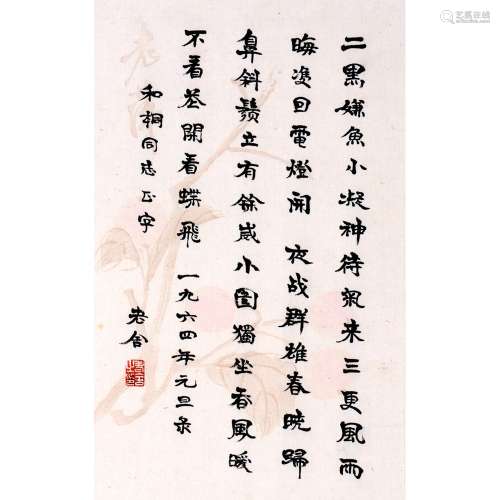 二黑嫌魚小凝神待氣来三更風雨
晦浸日電燈開 夜战群雄春晓歸
鼻斜鬚立有餘威小園獨坐香風暖
不看花開看蝶飛 一九六四年元旦录
和桐同志正字
老舍
易拍全球